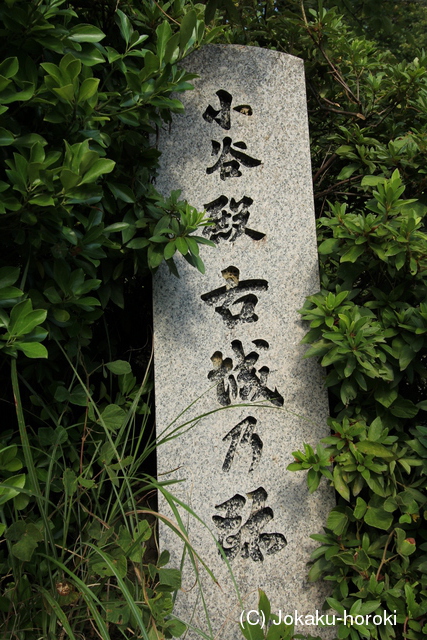 小谷殿古城乃跡
(C) Jokaku-horoki